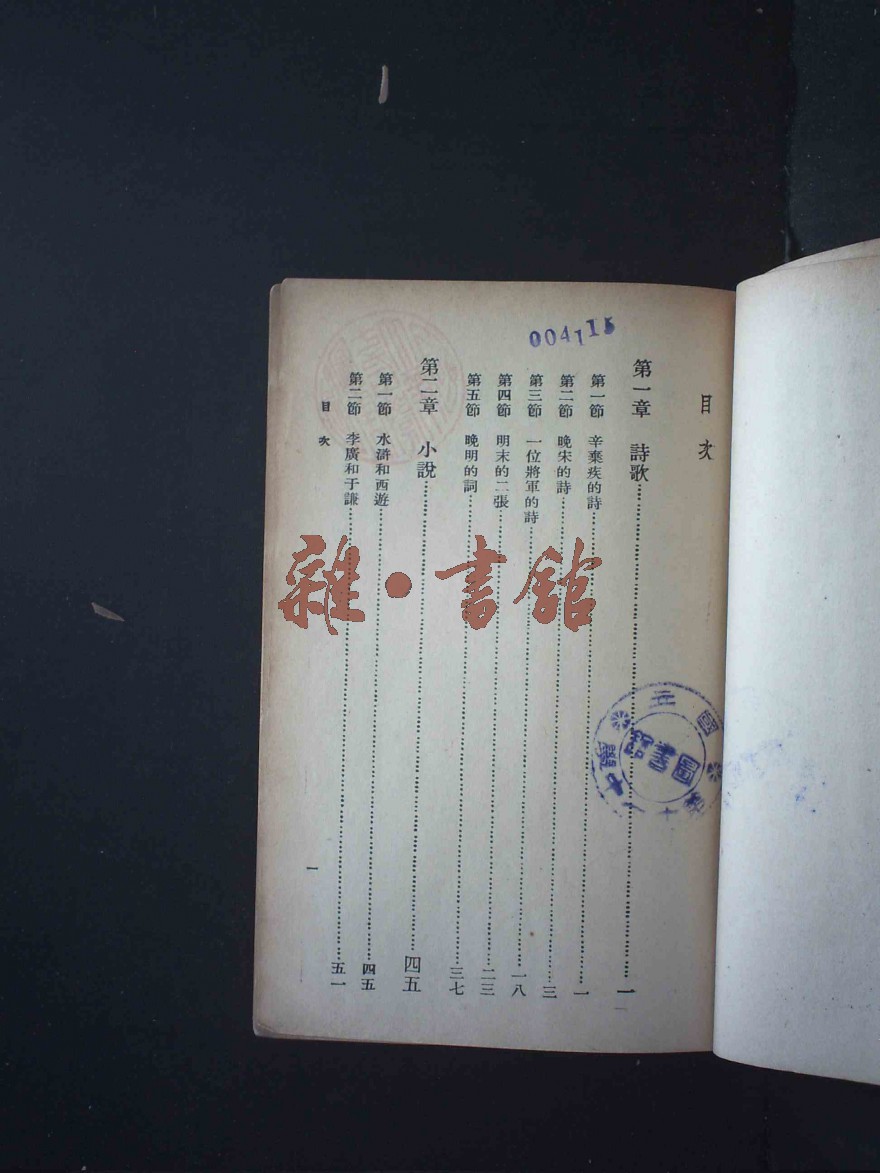 004115
目次
第一章　詩歌……一
第一節　辛棄疾的詩……一
第二節　晚宋的詩……三
第三節　一位將軍的詩……一八
第四節　明末的二張……二三
第五節　晚明的詞……三七
第二章　小說……四五
第一節　水滸和西遊……四五
第二節　李廣和于謙……五一
目次
一
雜·書館
國立
十一中學
圖書館